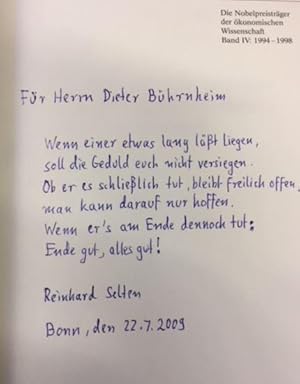 Die Nobelpreisträger
der ökonomischen
Wissenschaft
Band IV: 1994–1998
Für Herrn Dieter Bührnheim
Wenn einer etwas lang läßt liegen,
soll die Geduld euch nicht versiegen.
Ob er es schließlich tut, bleibt freilich offen,
man kann darauf nur hoffen.
Wenn er's am Ende dennoch tut:
Ende gut, alles gut!
Reinhard Selten
Bonn, den 22.7.2009